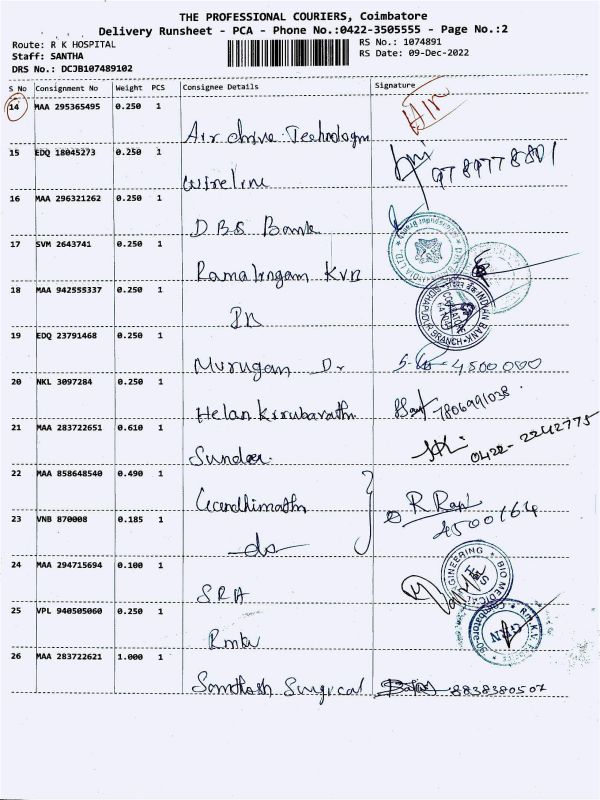 THE PROFESSIONAL COURIERS, Coimbatore
Delivery Runsheet - PCA - Phone No.:0422-3505555 - Page No.:2
Route: R K HOSPITAL
RS No.: 1074891
Staff: SANTHA
RS Date: 09-Dec-2022
DRS No.: DCJB107489102
S No Consignment No Weight PCS Consignee Details Signature
14 MAA 295365495 0.250 1
Air
Air drive Technologm
15 EDQ 18045273 0.250 1
9789778801
Wireline
16 MAA 296321262 0.250 1
DBS Bank
17 SVM 2643741 0.250 1
Ramalingam KVB
18 MAA 942555337 0.250 1
INDIAN BANK
BRANCH
IB
19 EDQ 23791468 0.250 1
Murugan Dr
4500000
20 NKL 3097284 0.250 1
Helan Kirubavathi
7806991038
21 MAA 283722651 0.610 1
0422-2242775
Sundar
22 MAA 858648540 0.490 1
Gandhimathi
R Rani
4500164
23 VNB 870008 0.185 1
do
24 MAA 294715694 0.100 1
BIO MEDICAL ENGINEERING
SRH
SRA
25 VPL 940505060 0.250 1
Rmkv
26 MAA 283722621 1.000 1
Santhosh Surgical
8838380507